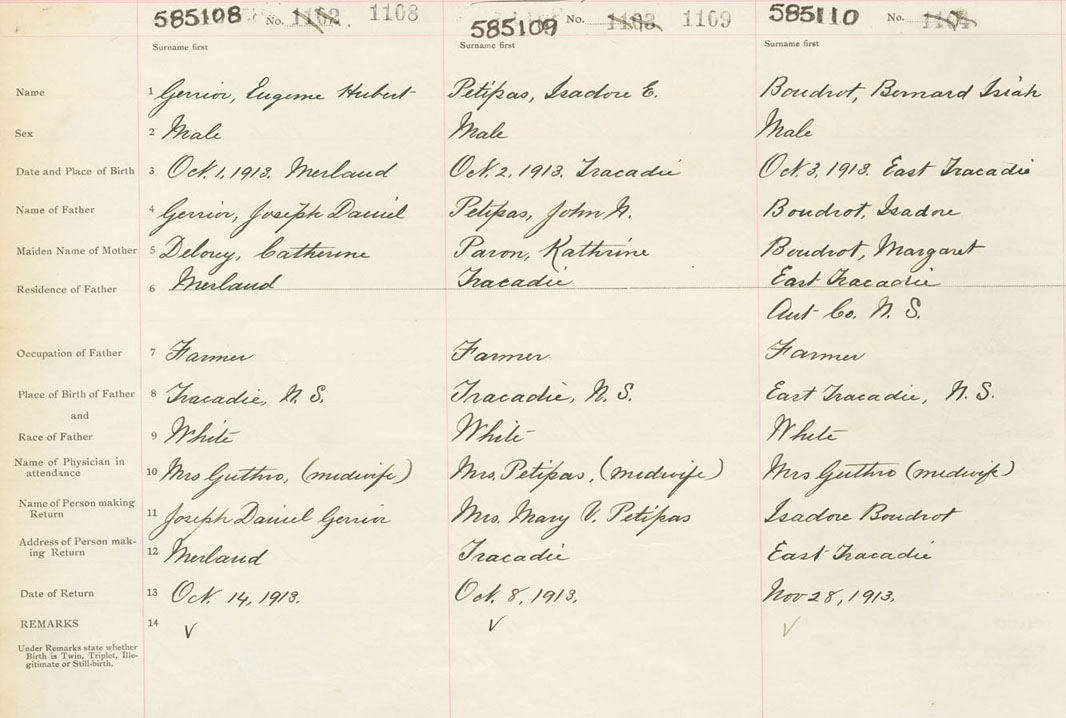 585108 No. 1102 1108 585109 No. 1103 1109 585110 No. 1104
Surname first Surname first Surname first
Name 1 Gerrior, Eugeme Hubert Petipas, Isadore E. Boudrot, Bernard Isiah
Sex 2 Male Male Male
Date and Place of Birth 3 Oct. 1, 1913. Merland Oct. 2, 1913. Tracadie Oct. 3, 1913. East Tracadie
Name of Father 4 Gerrior, Joseph Daniel Petipas, John N. Boudrot, Isadore
Maiden Name of Mother 5 Delorey, Catherine Paron, Kathrine Boudrot, Margaret
Residence of Father 6 Merland Tracadie East Tracadie
Ant Co. N. S.
Occupation of Father 7 Farmer Farmer Farmer
Place of Birth of Father 8 Tracadie, N. S. Tracadie, N. S. East Tracadie, N. S.
and
Race of Father 9 White White White
Name of Physician in
attendance 10 Mrs Guthro, (midwife) Mrs. Petipas, (midwife) Mrs Guthro (midwife)
Name of Person making
Return 11 Joseph Daniel Gerrior Mrs. Mary V. Petipas Isadore Boudrot
Address of Person mak-
ing Return 12 Merland Tracadie East Tracadie
Date of Return 13 Oct. 14, 1913. Oct. 8, 1913. Nov 28, 1913.
REMARKS 14
Under Remarks state whether
Birth is Twin, Triplet, Ille-
gitimate or Still-birth.